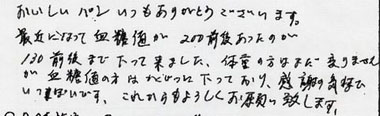 おいしいパンいつもありがとうございます。
最近になって血糖値が200前後あったのが
130前後まで下って来ました、体重の方はまだ変りません
が血糖値の方はかくじつに下っており、感謝の気持で
いっぱいです。これからもよろしくお願い致します。